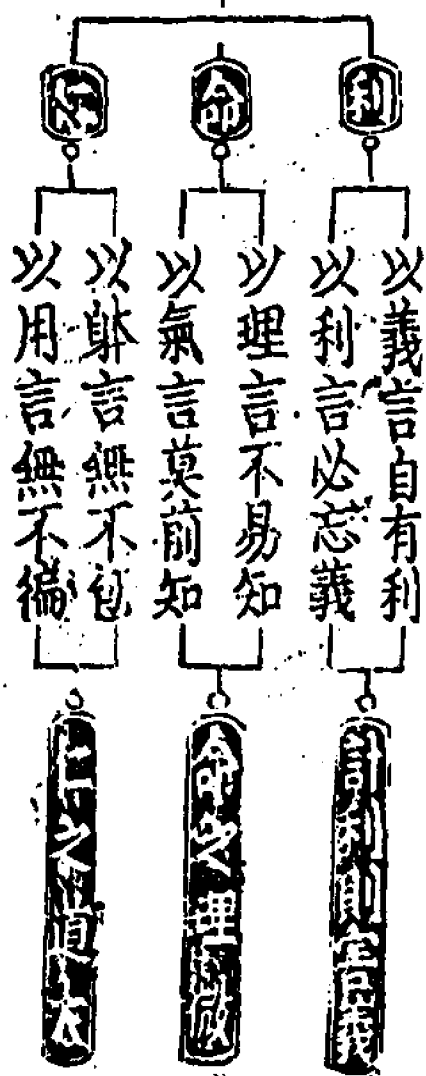 利
以義言自有利
以利言必忘義
計利則害義
命
以理言不易知
以氣言莫前知
命之理微
仁
以躰言無不包
以用言無不徧
仁之道大